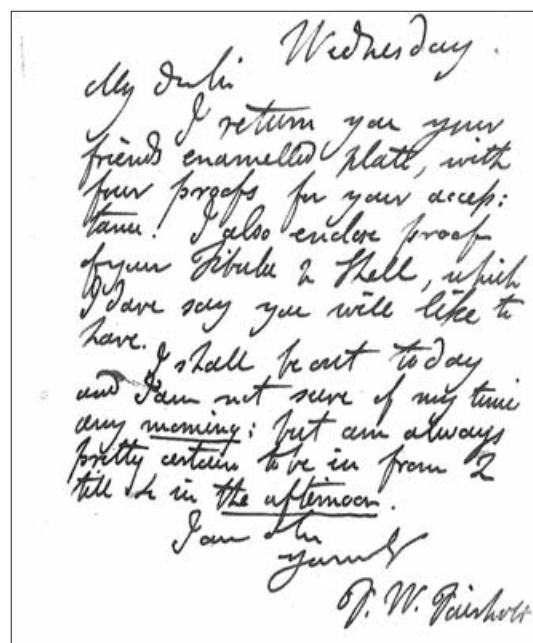 Wednesday.
My dr Sir
I return you your
friends enamelled plate, with
four proofs for your accep:
tance. I also enclose proof
of your Fibula & Shell, which
I dare say you will like to
have.
I shall be out today
and I am not sure of my time
any morning: but am always
pretty certain to be in from 2
till 4 in the afternoon.
I am
yours
F. W. Fairholt